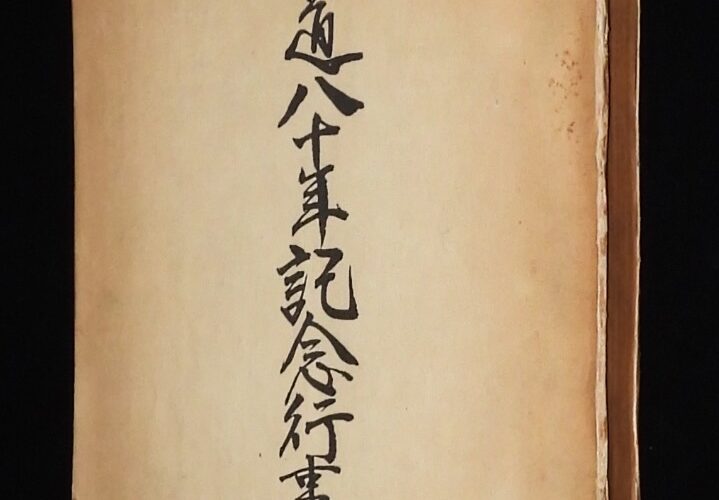 道八十年記念行事